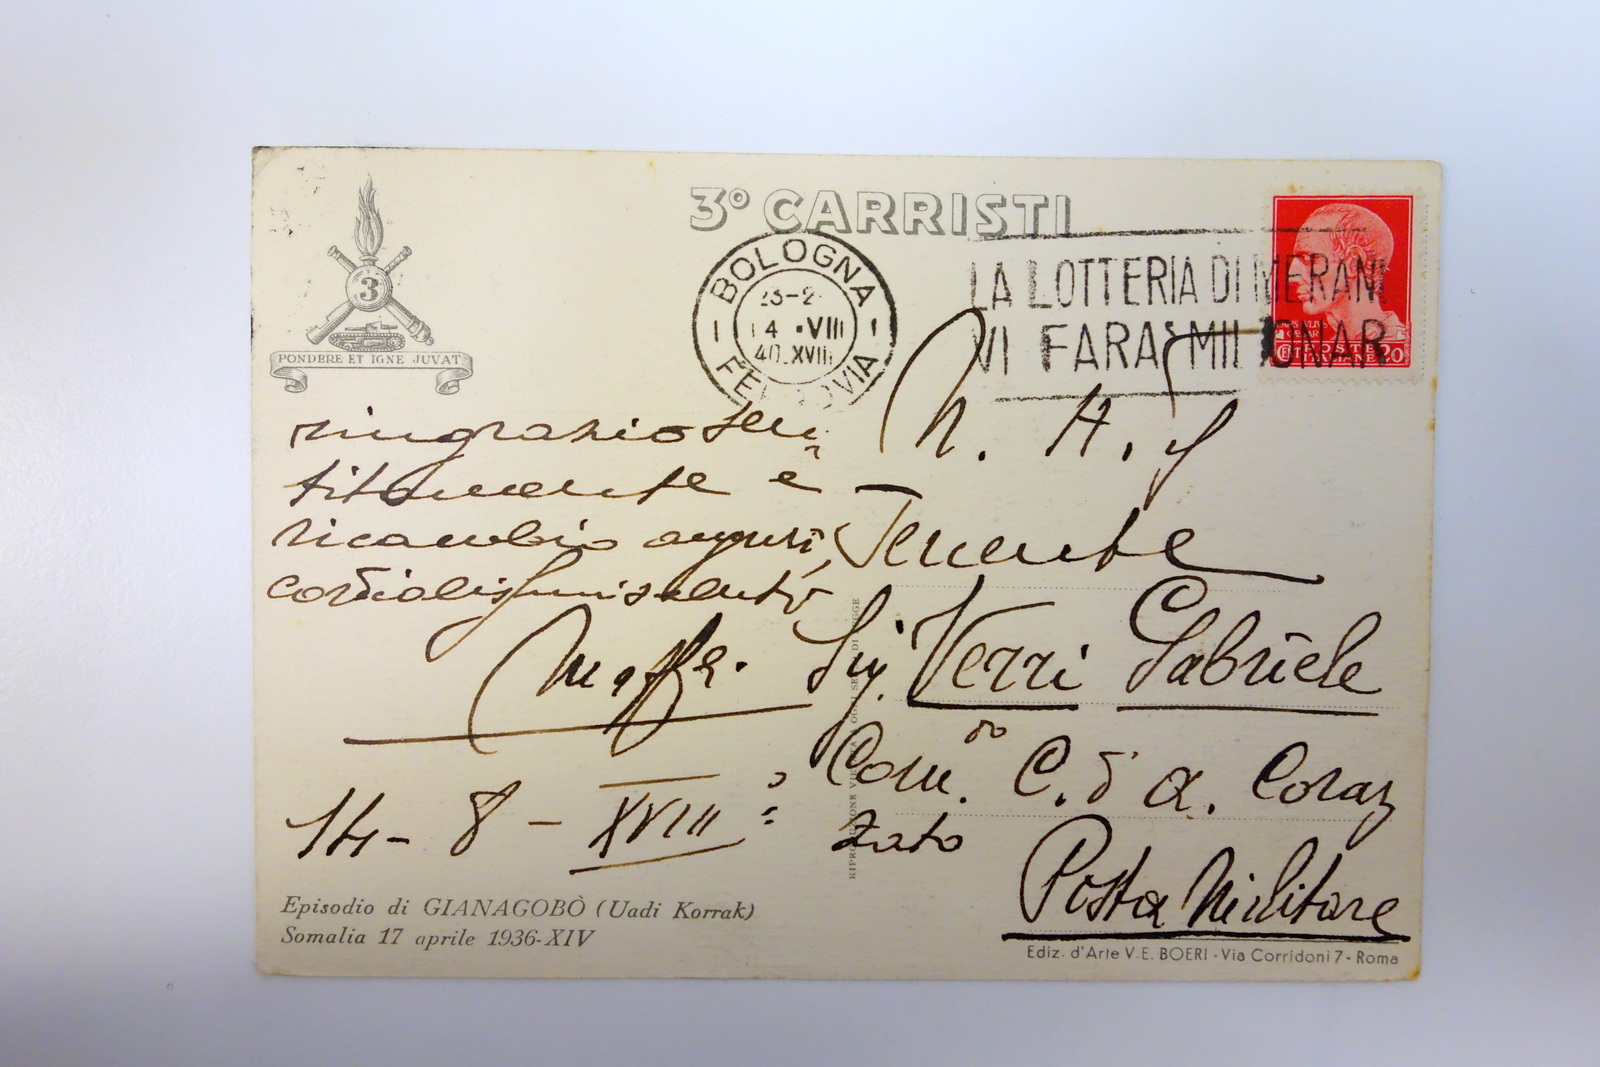 3° CARRISTI
3
PONDERE ET IGNE JUVAT
BOLOGNA
14 · VIII
40. XVIII
LA LOTTERIA DI MERAN
VI FARA' MIL IONAR
POSTE
ITALIANE
CENT 20
ringrazio sen
titamente e
ricambio auguri,
cordialissimi saluti
14 - 8 - XVIII°
N. H.
Tenente
Sig. Verri Gabriele
Com.do C. d'A. Coraz
zato
Posta Militare
RIPRODUZIONE VIETATA
Episodio di GIANAGOBÒ (Uadi Korrak)
Somalia 17 aprile 1936-XIV
Ediz. d'Arte V. E. BOERI - Via Corridoni 7 - Roma